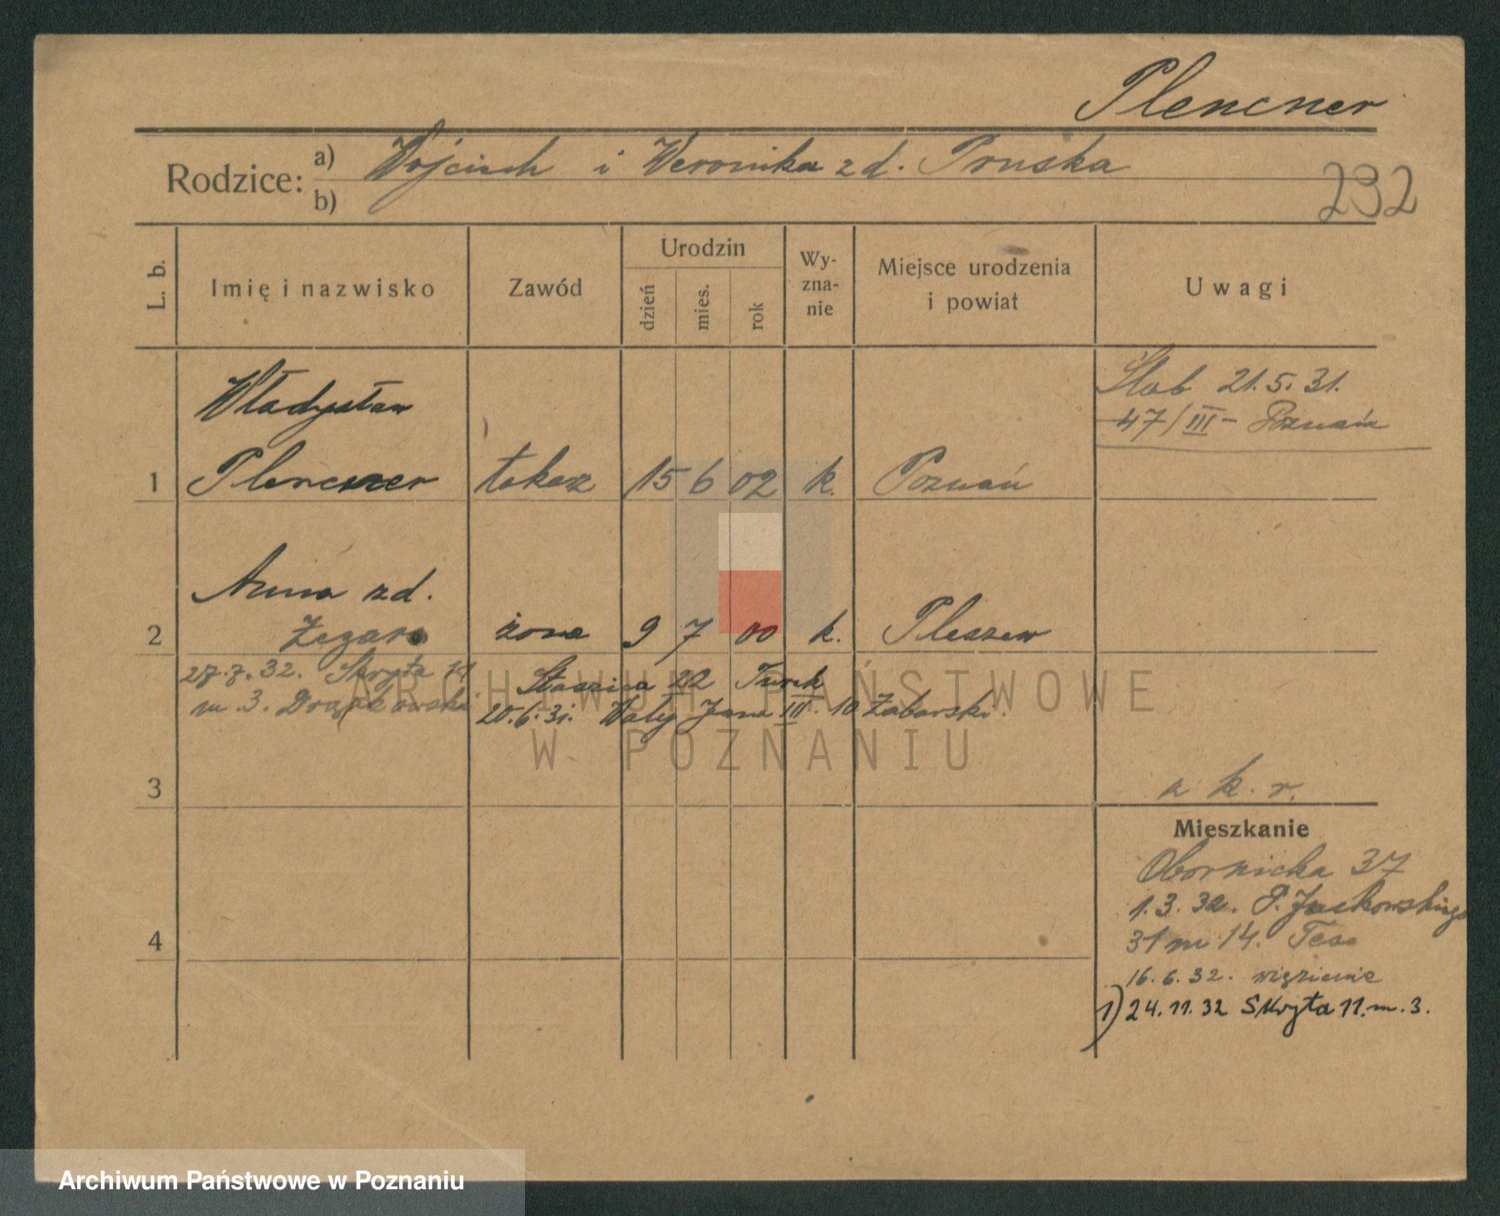 Plencner
Rodzice: a) Wojciech i Weronika z d. Pruska
b)
232
L. b.
Imię i nazwisko
Zawód
Urodzin
dzień
mies.
rok
Wy-
zna-
nie
Miejsce urodzenia
i powiat
Uwagi
Władysław
Ślub 21.5.31.
47/III – Poznań
1 Plencner tokarz 15 6 02 k. Poznań
Anna z d.
2 Żegar żona 9 7 00 k. Pleszew
27.7.32. Skryta 11
m. 3. Drążkowski
Staszica 22 Turek
20.6.31. Wały Jana III. 10 Zaborski.
3
z k. r.
Mieszkanie
Obornicka 37
1.3.32. P. Jackowskiego
31 m 14.
4
16.6.32. więzienie
1) 24.11.32 Skryta 11. m. 3.
ARCHIWUM PAŃSTWOWE
W POZNANIU
Archiwum Państwowe w Poznaniu